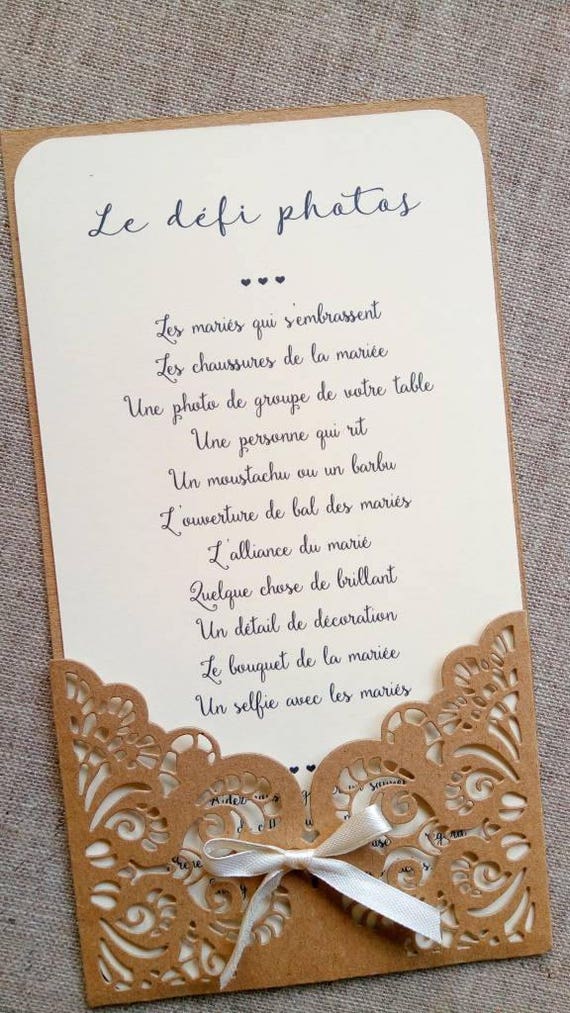 Le défi photos
Les mariés qui s'embrassent
Les chaussures de la mariée
Une photo de groupe de votre table
Une personne qui rit
Un moustachu ou un barbu
L'ouverture de bal des mariés
L'alliance du marié
Quelque chose de brillant
Un détail de décoration
Le bouquet de la mariée
Un selfie avec les mariés